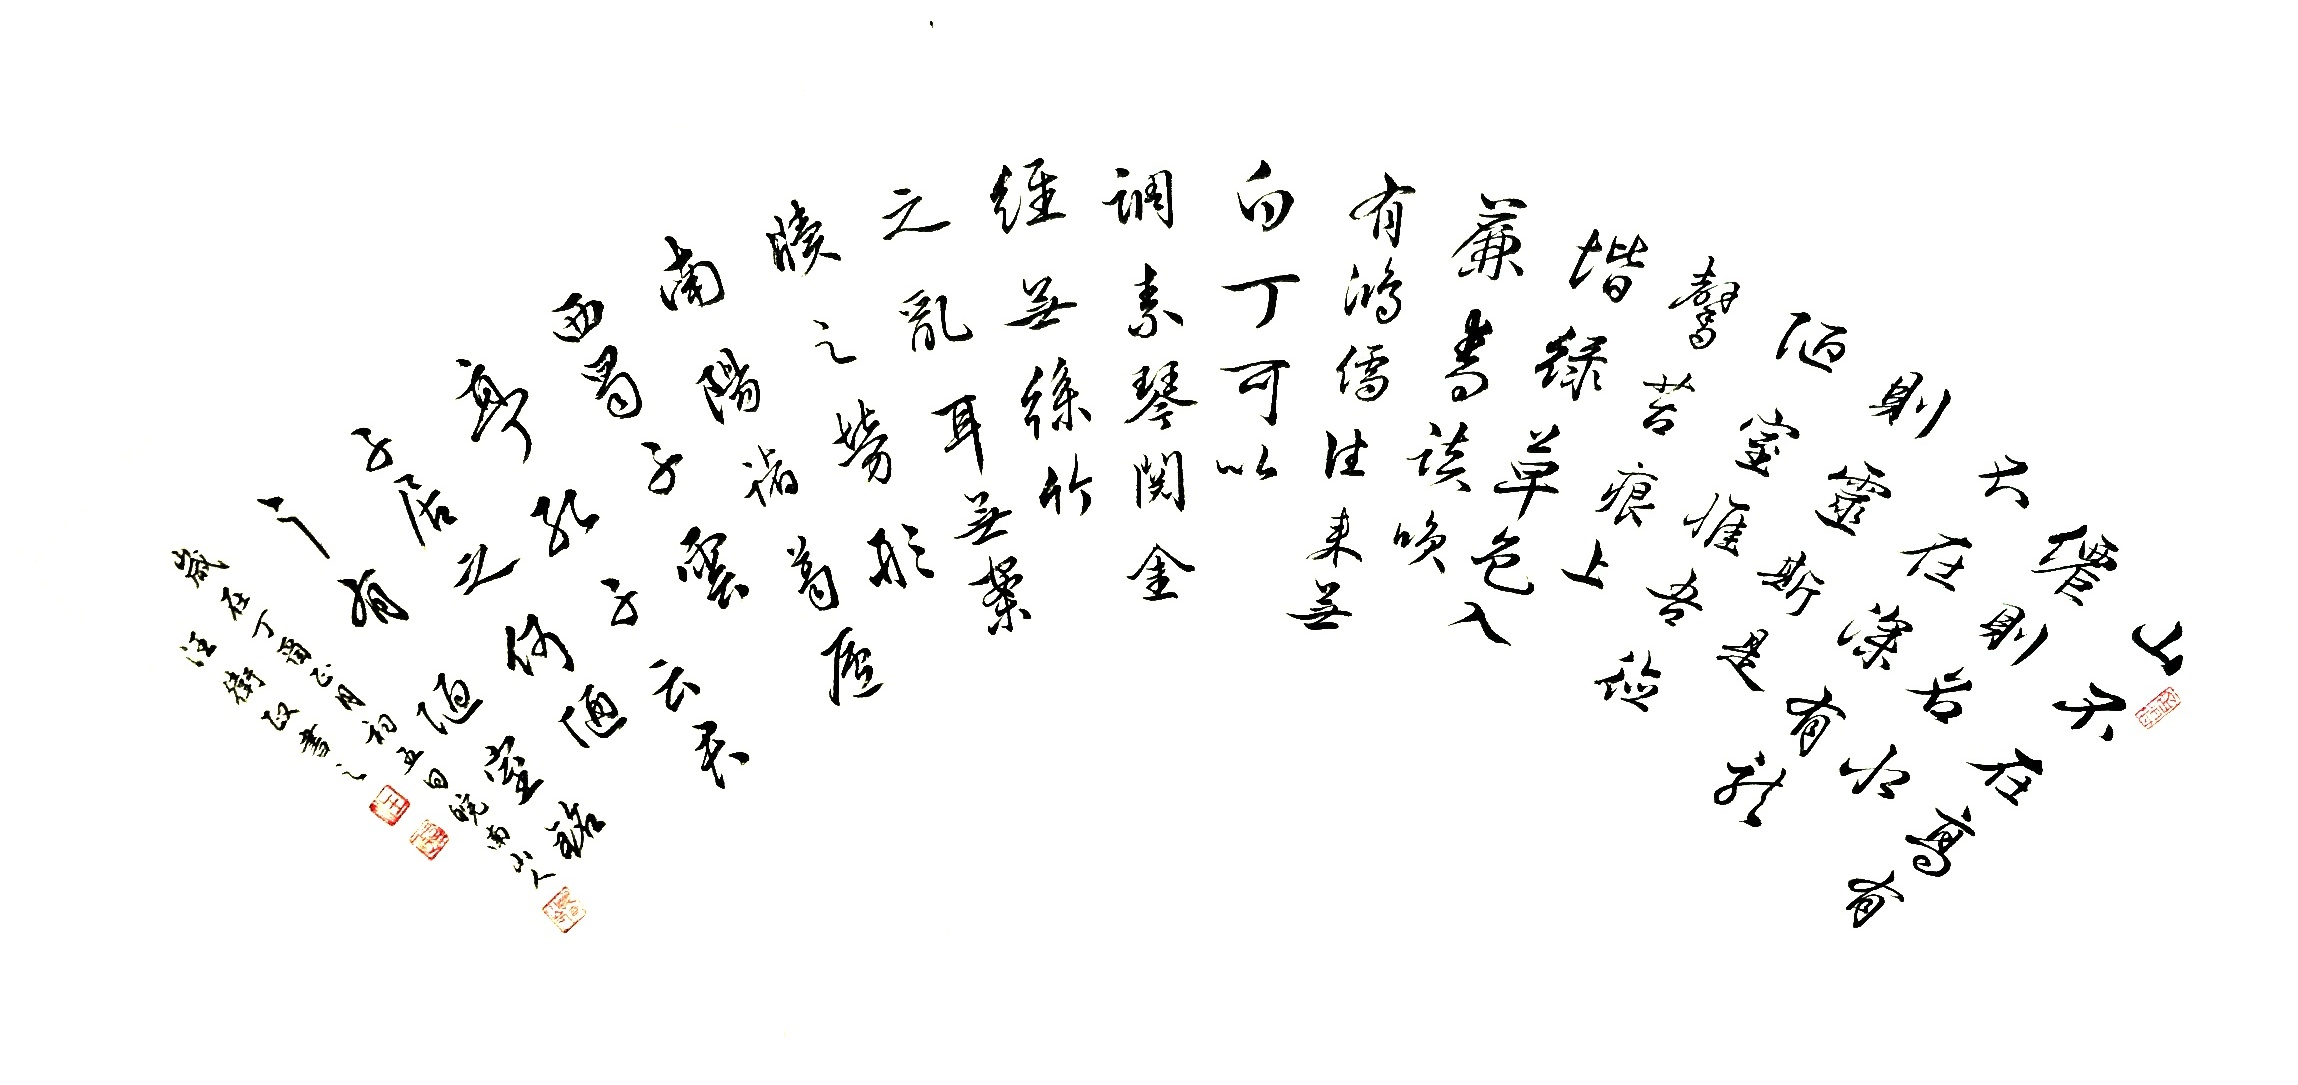 山不在高有
僊則名水
不在深有龍
則靈斯是
陋室惟吾德
馨苔痕上
堦綠草色入
簾青談笑
有鴻儒往來無
白丁可以
調素琴閱金
經無絲竹
之亂耳無案
牘之勞形
南陽諸葛廬
西蜀子雲
亭孔子云君
子居之何陋
之有陋室銘
歲在丁酉正月初五日皖南山人
汪衛政書之